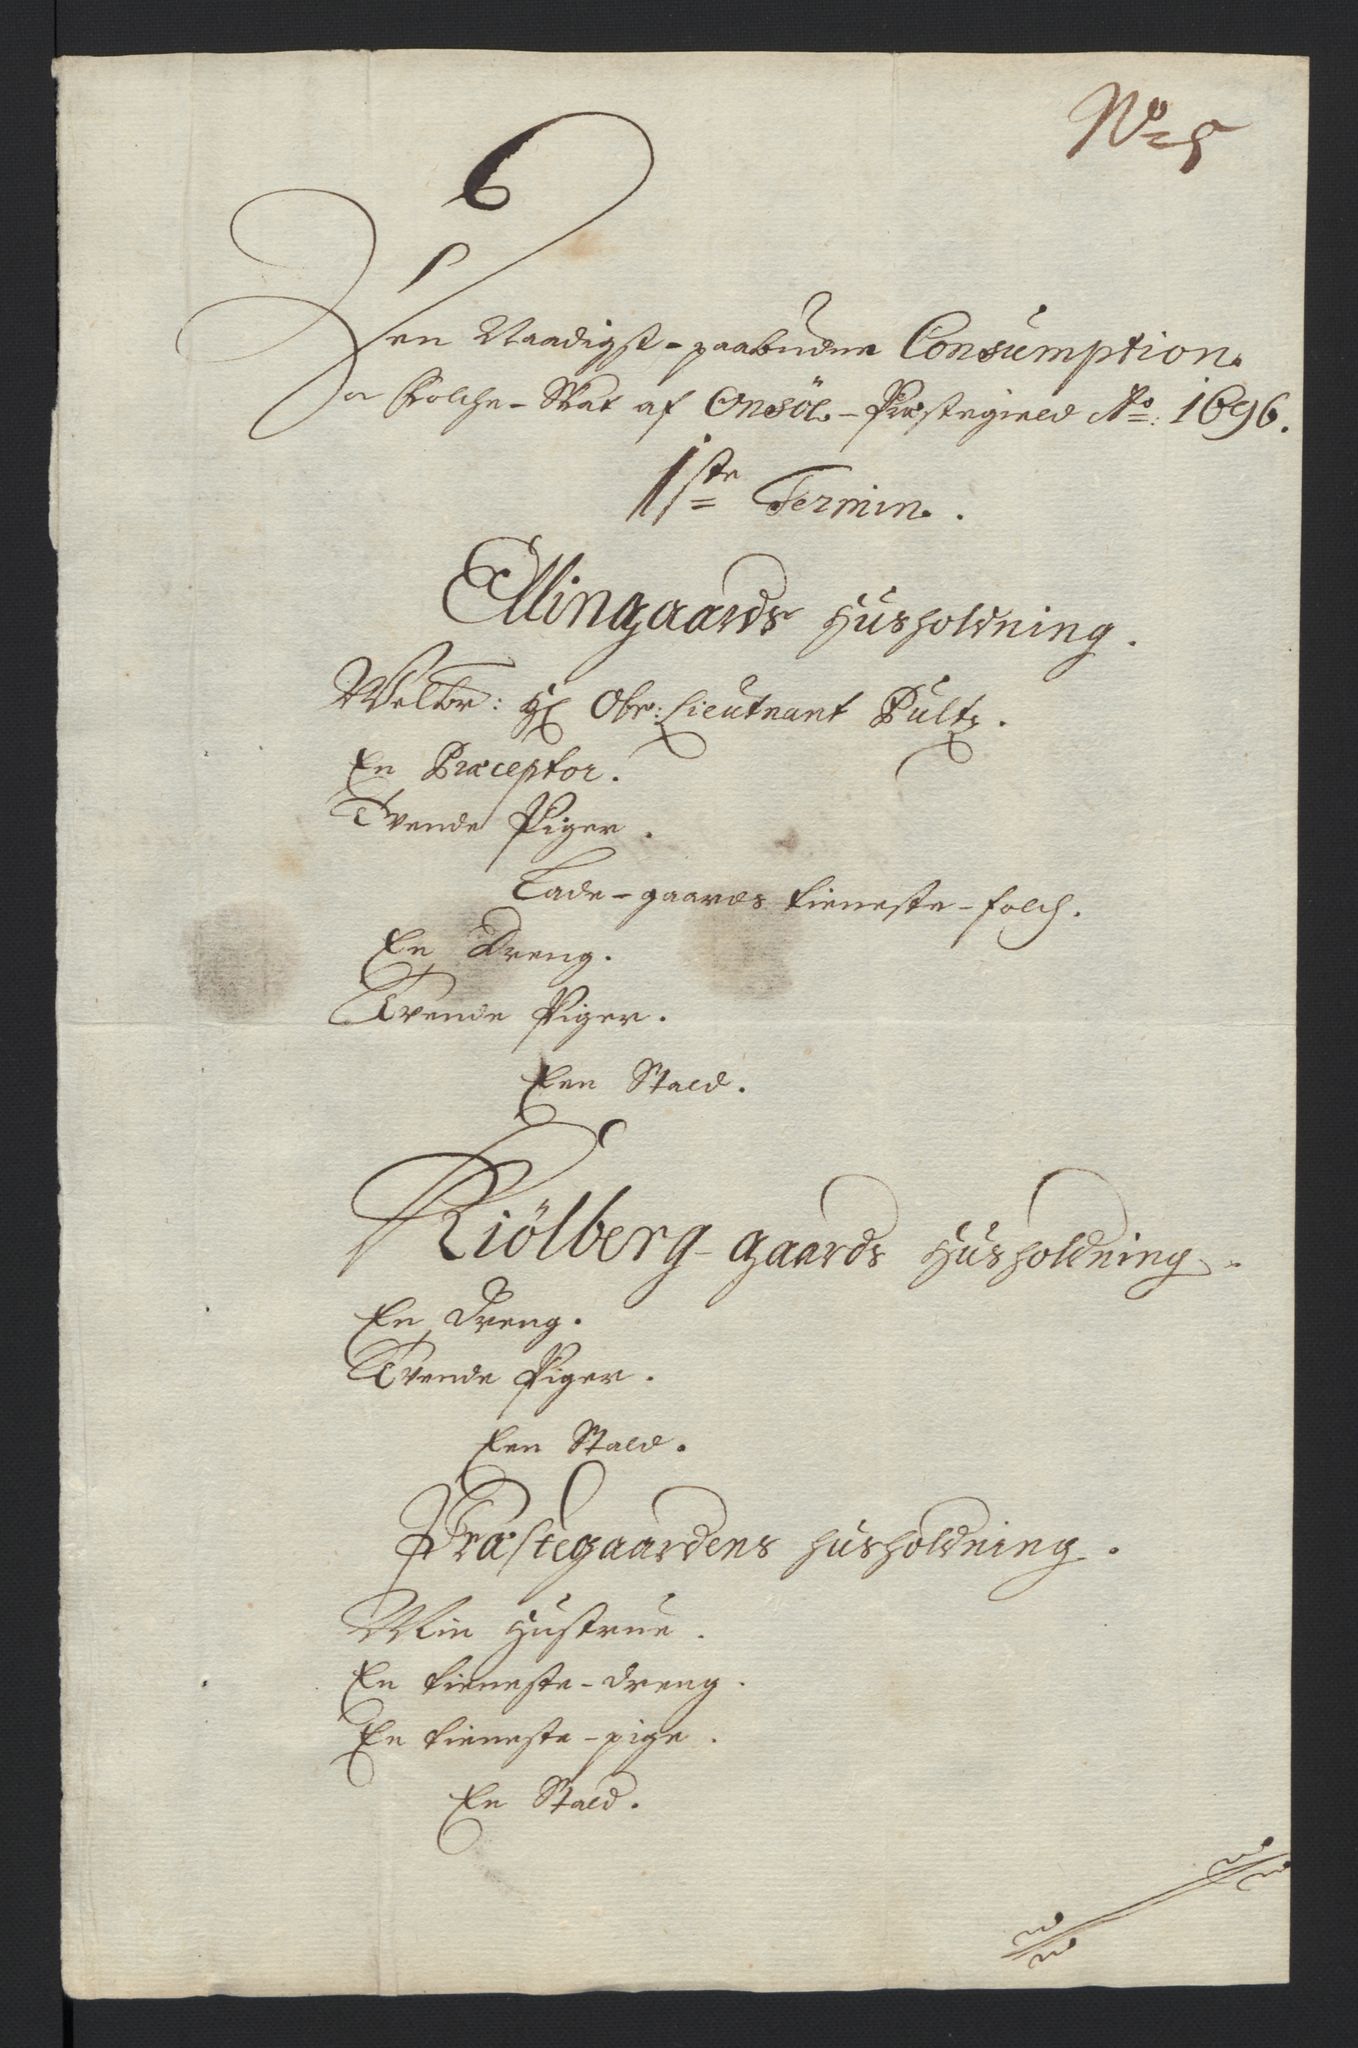 No 5
Den Naadigst-paabudne Consumption
oc Folche-Skat af Onsöe-Præstegield Ao: 1696.
1ste Termin.
Ellingaards Husholdning.
Welbr: Hr Obr: Lieutnant Pultz.
En Præceptor.
Tvende Piger.
Lade-gaards tieneste-folch.
En Dreng.
Tvende Piger.
Een Stald.
Kiölberg-gaards Husholdning.
En Dreng.
Tvende Piger.
Een Stald.
Præstegaardens Husholdning.
Min Hustrue.
En tieneste-dreng.
En tieneste-pige.
En Stald.